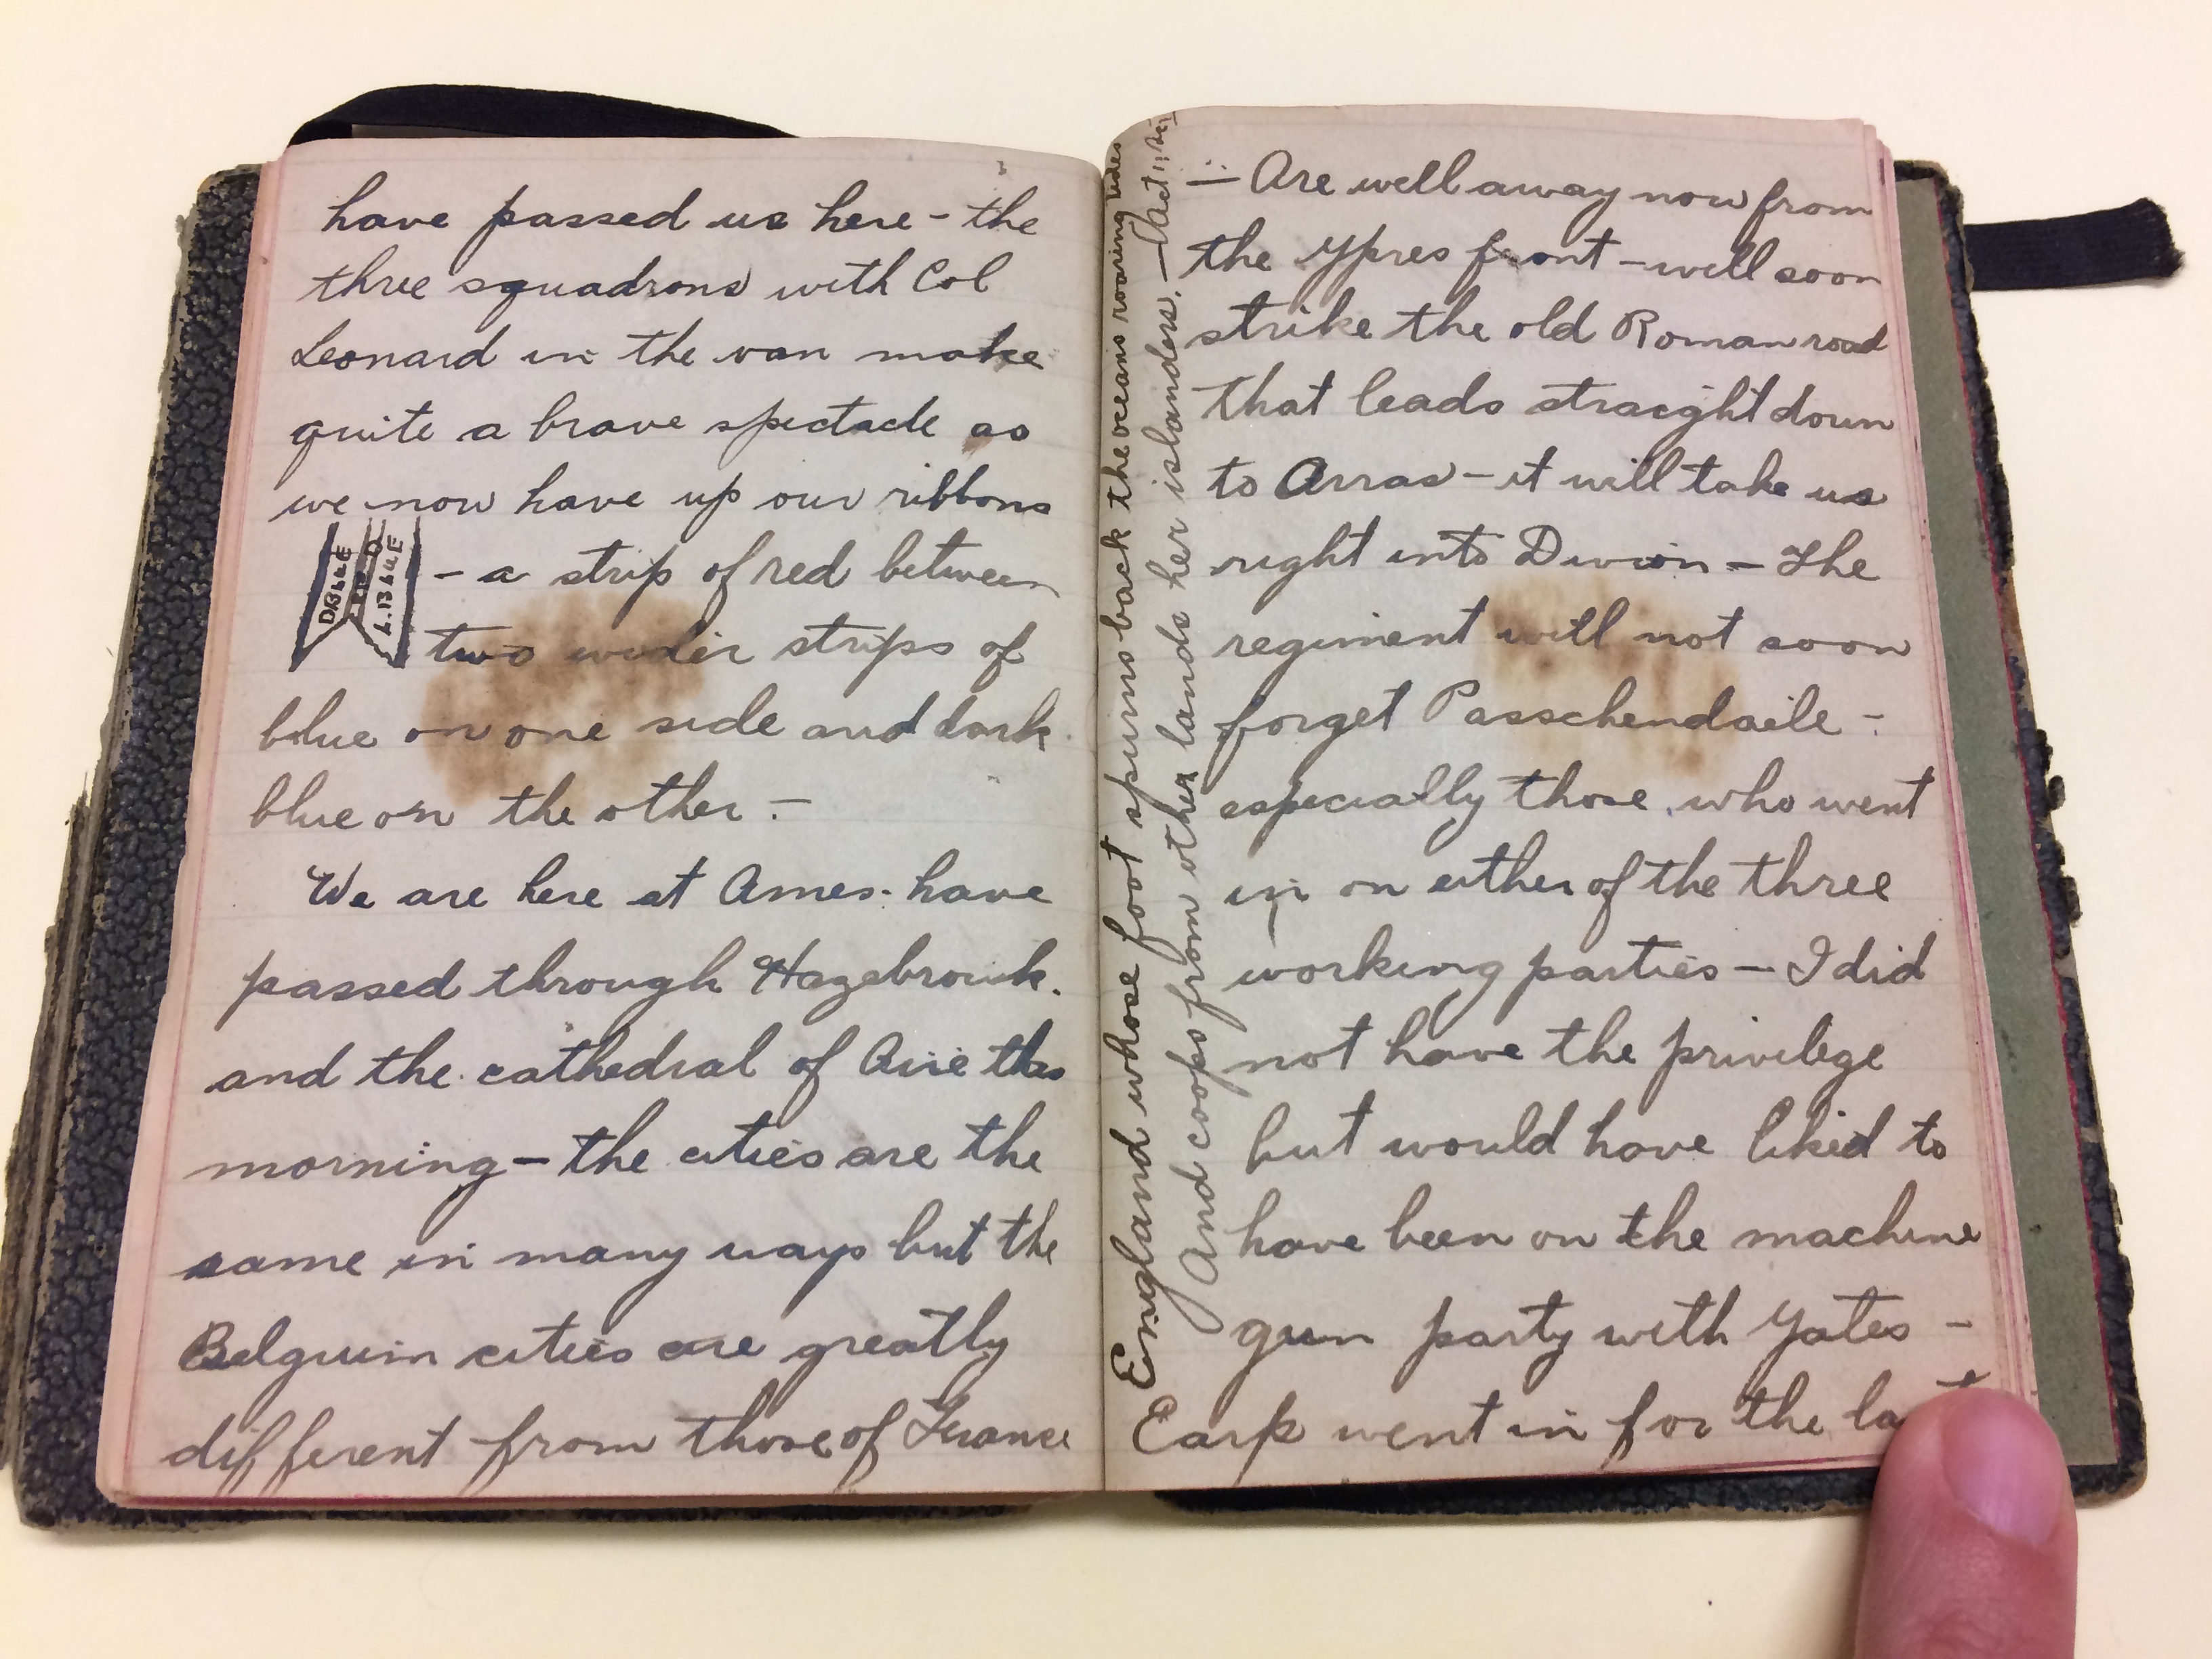 have passed us here - the
three squadrons with Col
Leonard in the van make
quite a brave spectacle as
we now have up our ribbons
D BLUE
RED
L. BLUE
- a strip of red between
two wider strips of
blue on one side and dark
blue on the other. -
We are here at Ames. have
passed through Hazebrouk.
and the cathedral of Aire this
morning - the cities are the
same in many ways but the
Belguim cities are greatly
different from those of France
England whose foot spurns back the oceans roaring tides
And coops from other lands her islanders. - Act II Sc
- Are well away now from
the Ypres front - will soon
strike the old Roman road
that leads straight down
to Arras - it will take us
right into Divion - The
regiment will not soon
forget Passchendaile -
especially those who went
in on either of the three
working parties - I did
not have the privilege
but would have liked to
have been on the machine
gun party with Yates -
Earp went in for the